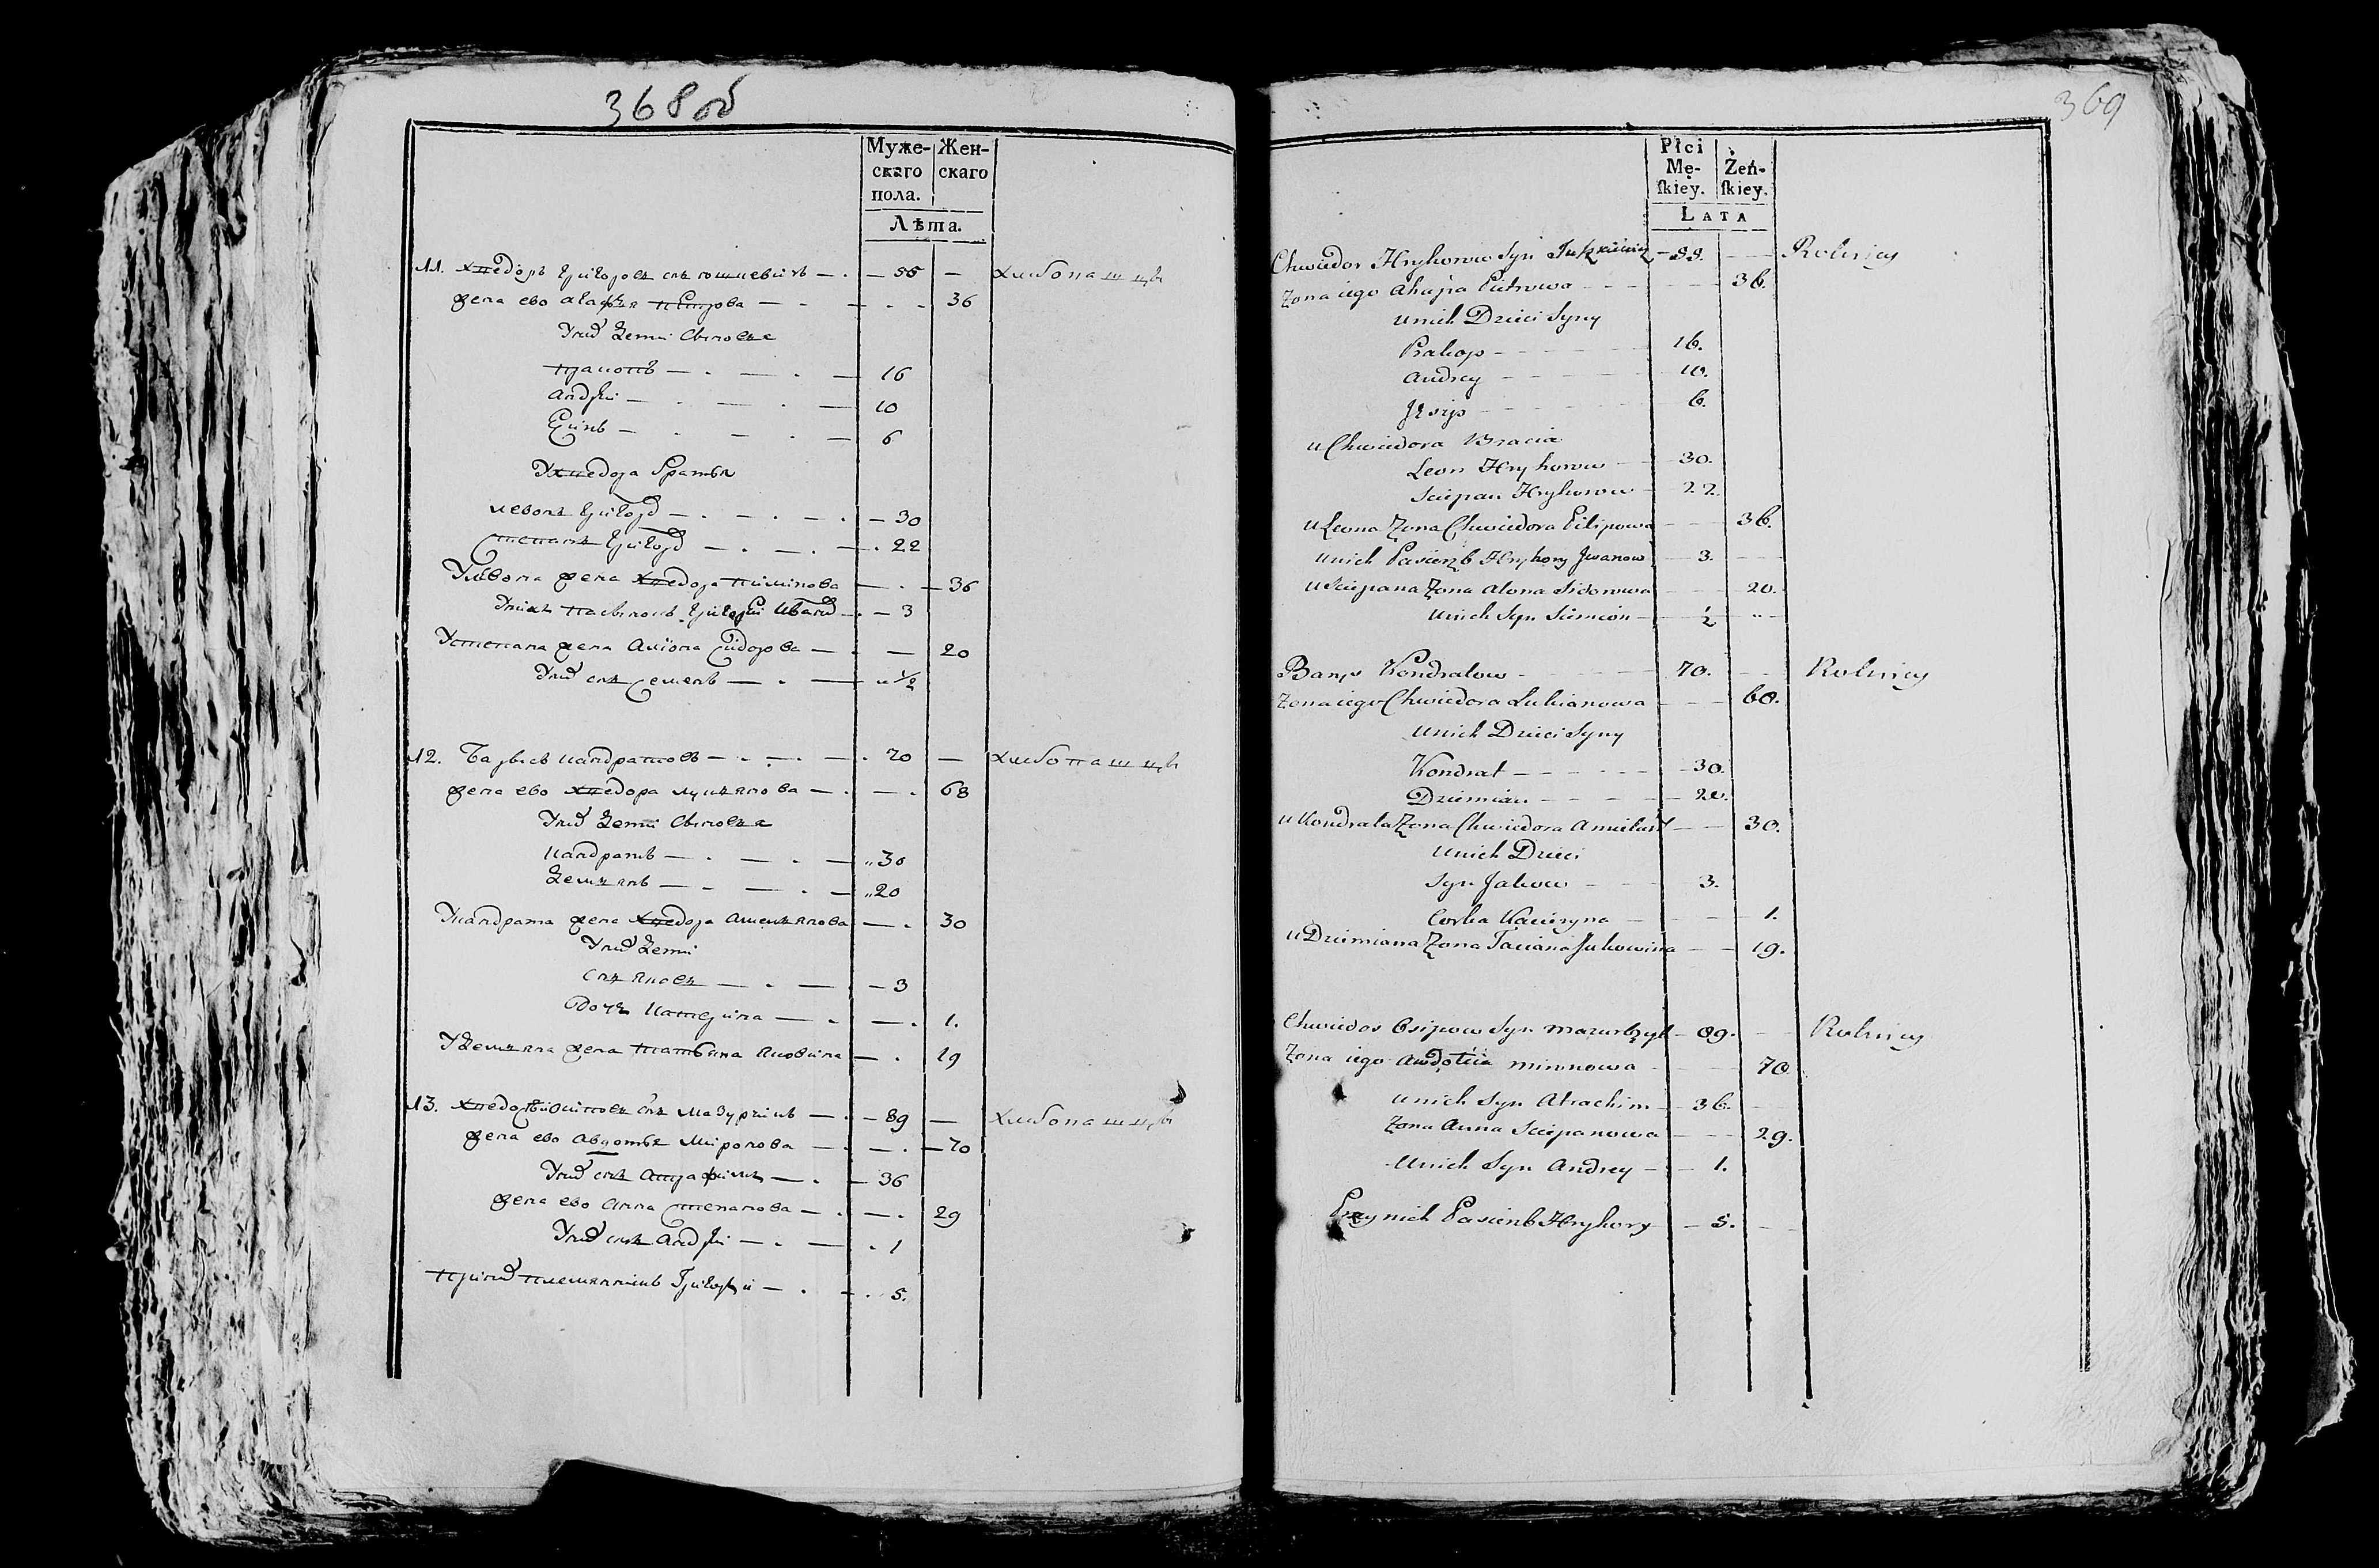 368 об
Муже-
скаго
пола.
Жен-
скаго
Лѣта.
11. Хведоръ Григоровъ снъ юшкевичъ 55 — хлебопашцы
жена ево агафия петрова 36
У них дети сыновья
Пракопъ 16
Андрей 10
Есипъ 6
У хведора братья
Левонъ Григоров 30
Степанъ Григоров 22
У Левона жена хведора пилипова 36
У них пасынокъ Григорей Иванов 3
У степана жена алиона Сидорова — 20
У них снъ Семенъ ½
12. Барысъ кандратовъ 70 — хлебопашцы
жена ево хведора лукянова 68
У них дети сыновья
кандратъ 30
демянъ 20
У кандрата жена хведора амелянова 30
У них дети
снъ яковъ 3
дочь катерина 1.
У демяна жена татьяна яковина 19
13. Хведоръ осиповъ снъ мазурчикъ 89 — хлебопашцы
жена ево авдотья миронова 70
У них снъ 36
жена ево анна степанова 29
У них снъ андрей 1
При них племянникъ Григорей 5.
369
Płci
Mę-
ſkiey.
Żeń-
ſkiey.
LATA
Chwiedor Hryhorow Syn Juszkiewicz 55. Rolnicy
Zona iego Ahapia Pietrowa 36.
u nich Dzieci Syny
Prakop 16.
Andrey 10.
Jzosip 6.
u Chwiedora Bracia
Leon Hryhorow 30.
Sciepan Hryhorow 22
u Leona Zona Chwiedora Pilipowa 36.
u nich Pasierzb Hryhory Jwanow 3.
u Sciepana Zona Alona Sidorowa 20.
u nich Syn Siemion ½
Barys Kondratow 70. Rolnicy
Zona iego Chwiedora Lukianowa 60.
u nich Dzieci Syny
Kondrat 30.
Dziemian 20.
u Kondrata Zona Chwiedora 30.
u nich Dzieci
Syn Jakow 3.
Corka Kacieryna 1.
u Dziemiana Zona Taciana Jakowina 19.
Chwiedor Osipow Syn Mazurczyk 89. Rolnicy
Zona iego Awdotia Mironowa 70
u nich Syn Atrachim 36.
Zona Anna Sciepanowa 29.
u nich Syn Andrey 1.
Przy nich Pasierb Hryhory 5.